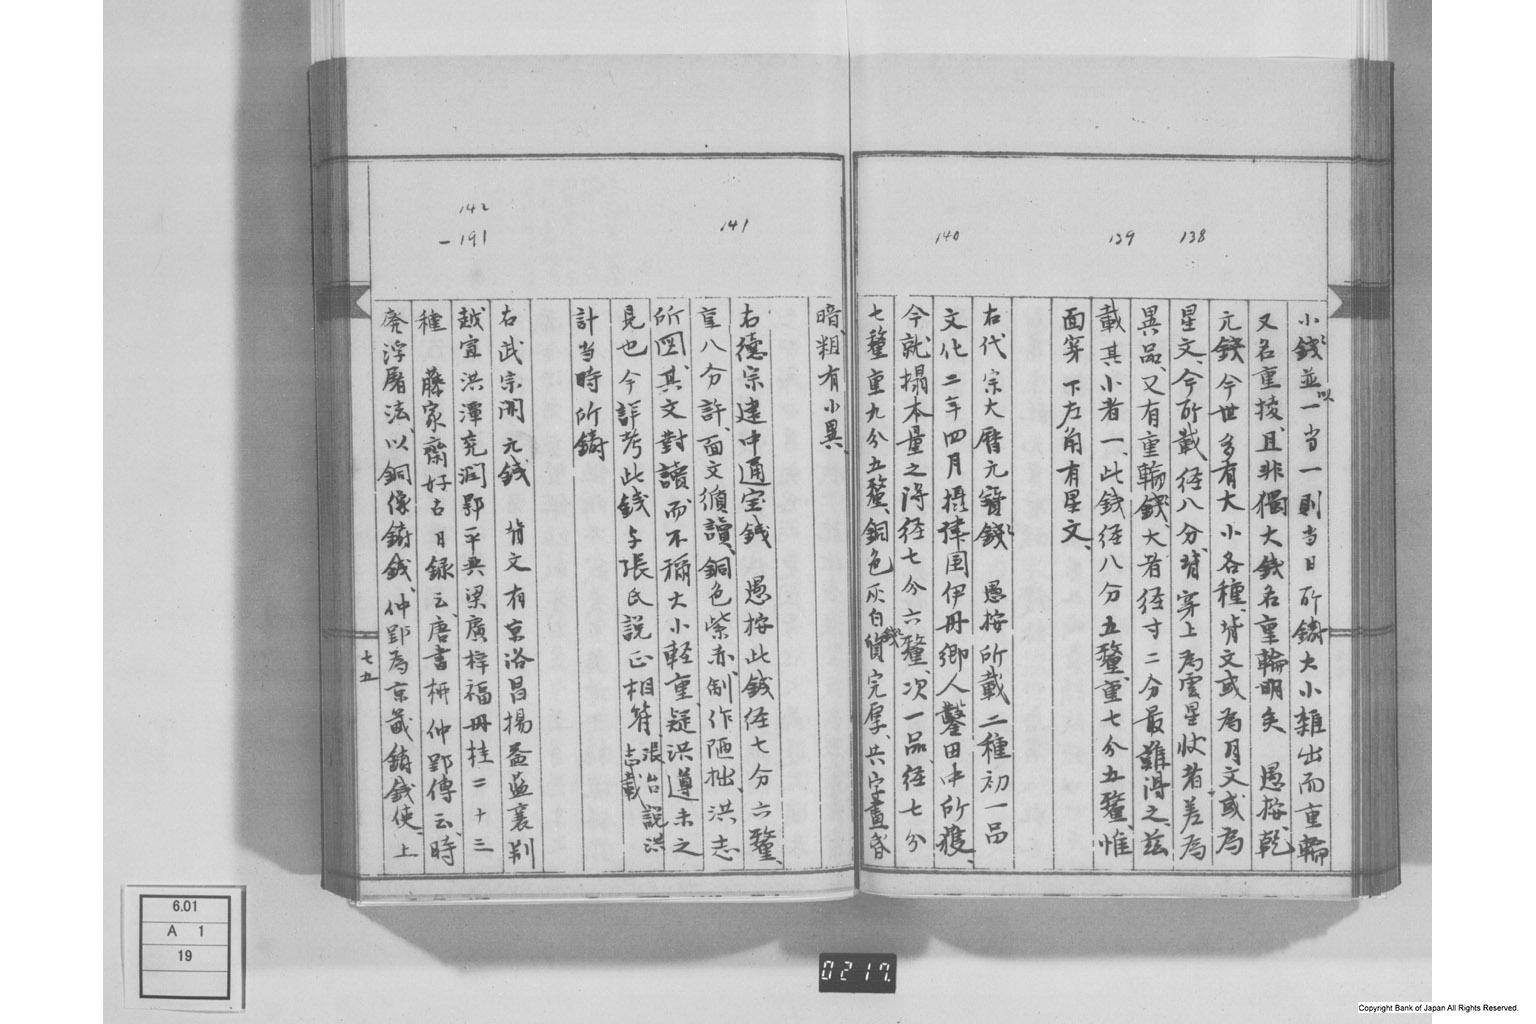 138
139
140
小錢並以一当一則当日所鑄大小雜出而重輪
又名重稜且非獨大錢名重輪明矣　愚按乾
元錢今世多有大小各種背文或為月文或為
星文今所載径八分背穿上為雲星状者差為
異品又有重輪錢大者径寸二分最難得之茲
載其小者一此錢径八分五釐重七分五釐惟
面穿下左角有星文
右代宗大曆元寳錢　愚按所載二種初一品
文化二年四月攝津国伊丹郷人鑿田中所獲
今就搨本量之得径七分六釐次一品径七分
七釐重九分五釐銅色灰白錢質完厚共字畫昏
141
142
－191
暗粗有小異
右徳宗建中通宝錢　愚按此錢径七分六釐
重八分許面文順讀銅色紫赤制作陋拙洪志
所図其文對讀而不稱大小軽重疑洪遵未之
見也今詳考此錢与張氏説正相符張台説洪志載
計当時所鑄
右武宗開元錢　背文有京洛昌揚益藍襄荆
越宣洪潭兗潤鄂平興梁廣梓福丹桂二十三
種　藤家齋好古日録云唐書柳仲郢傳云時
廃浮屠法以銅像鑄錢仲郢為京畿鑄錢使上
七五
6.01
A 1
19
0217.
Copyright Bank of Japan All Rights Reserved.